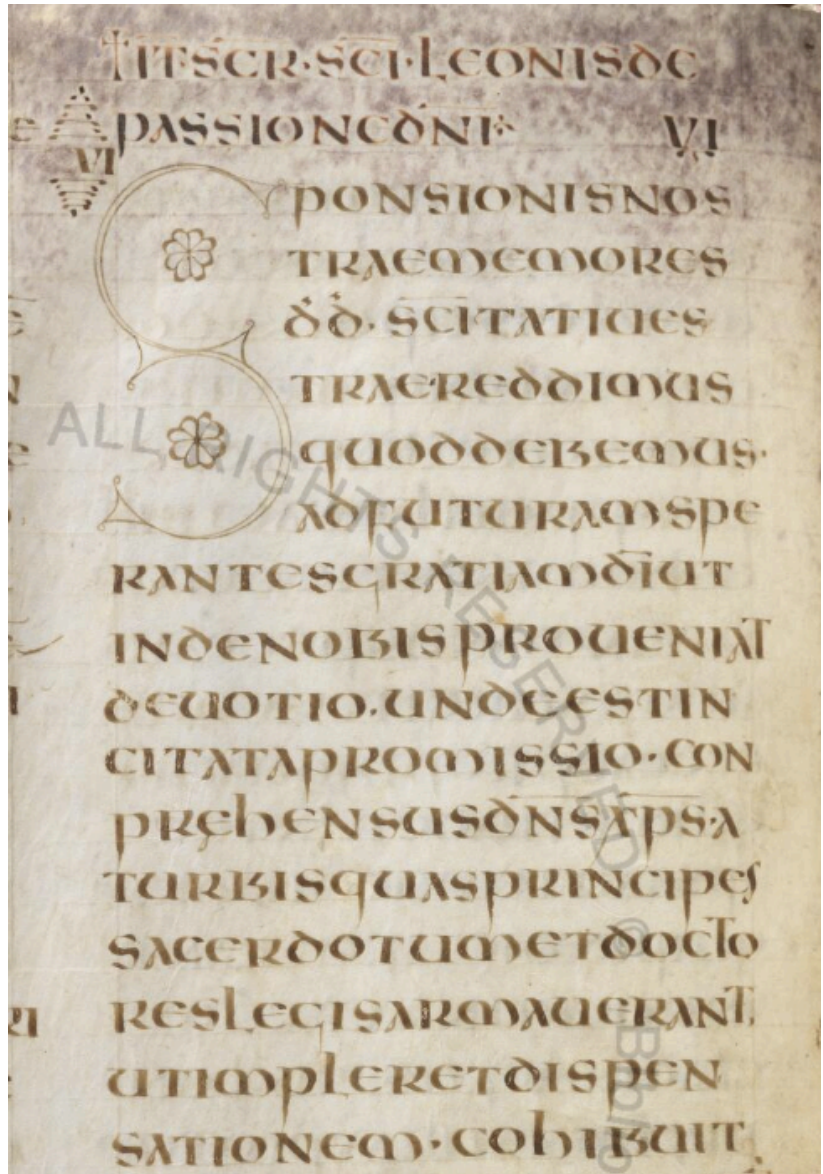 †IT·SCR·SCI·LEONIS DE
PASSIONE DNI VI
VI
SPONSIONIS NOS
TRAE MEMORES
DD· SCITATI UES
TRAE REDDIMUS
QUOD DEBEMUS·
AD FUTURAM SPE
RANTES GRATIAM DI UT
INDE NOBIS PROUENIAT
DEUOTIO. UNDE EST IN
CITATA PROMISSIO· CON
PREHENSUS DNS XPS· A
TURBIS QUAS PRINCIPES
SACERDOTUM ET DOCTO
RES LEGIS ARMAUERANT,
UT IMPLERET DISPEN
SATIONEM· COHIBUIT
ALL RIGHTS RESERVED © Biblio